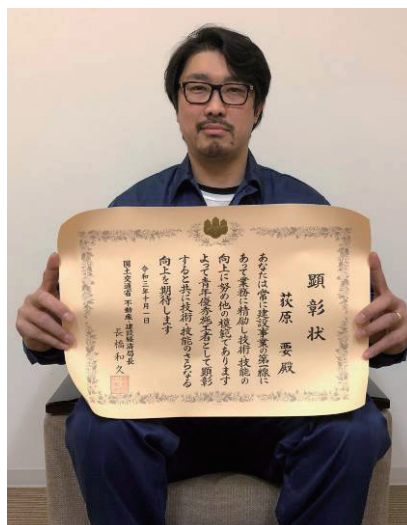 顕彰状
荻原 要 殿
あなたは常に建設事業の第一線に
あって業務に精励し技術・技能の
向上に努め他の模範であります
よって青年優秀施工者として顕彰
すると共に技術・技能のさらなる
向上を期待します
令和三年十月一日
国土交通省 不動産・建設経済局長
長橋和久